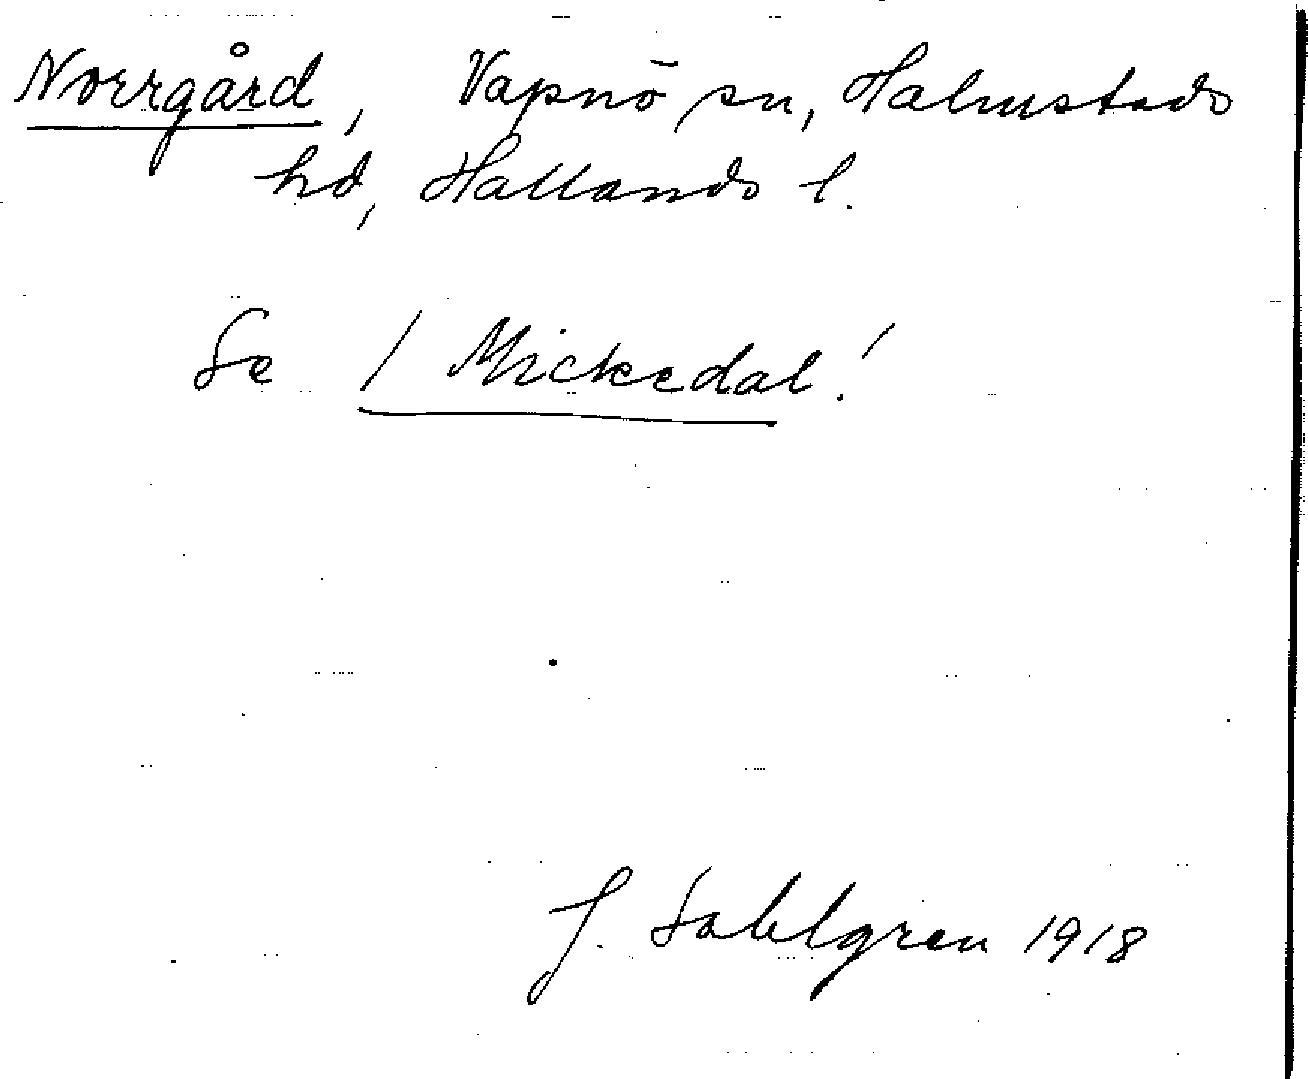 Norrgård, Vapnö sn, Halmstads
hd, Hallands l.
Se / Mickedal!
J. Sahlgren 1918